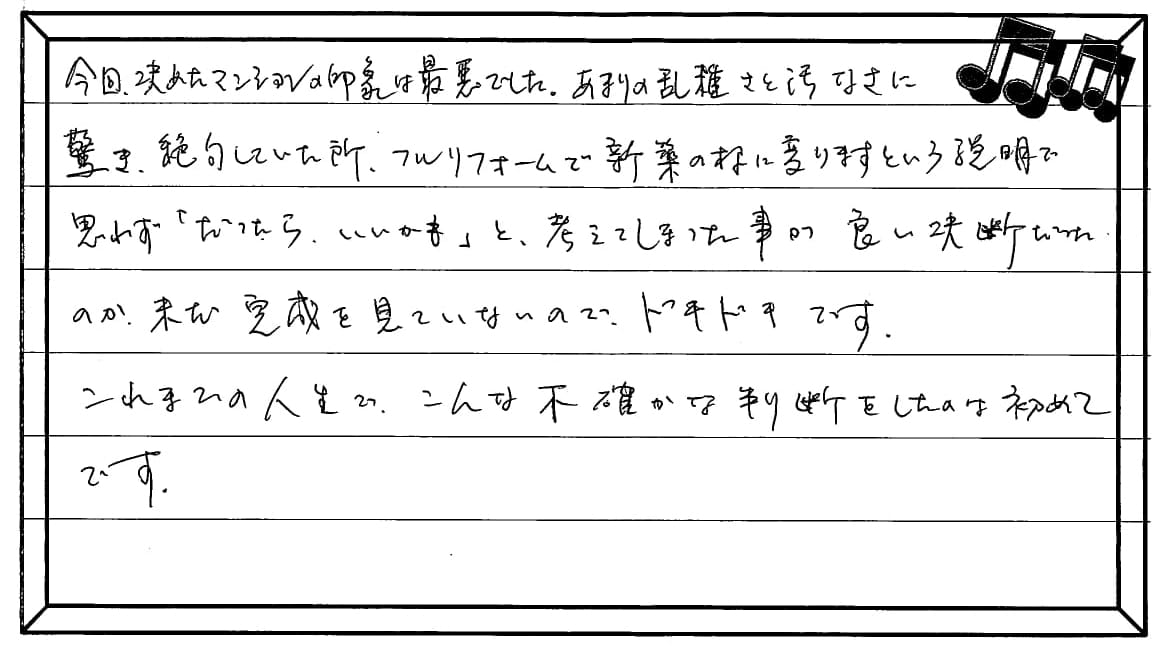 今回、決めたマンションの印象は最悪でした。あまりの乱雑さと汚なさに
驚き、絶句していた所、フルリフォームで新築の様に変りますという説明で
思わず「だったら、いいかも」と、考えてしまった事が良い決断だった
のか、未だ完成を見ていないので、ドキドキです。
これまでの人生で、こんな不確かな判断をしたのは初めて
です。